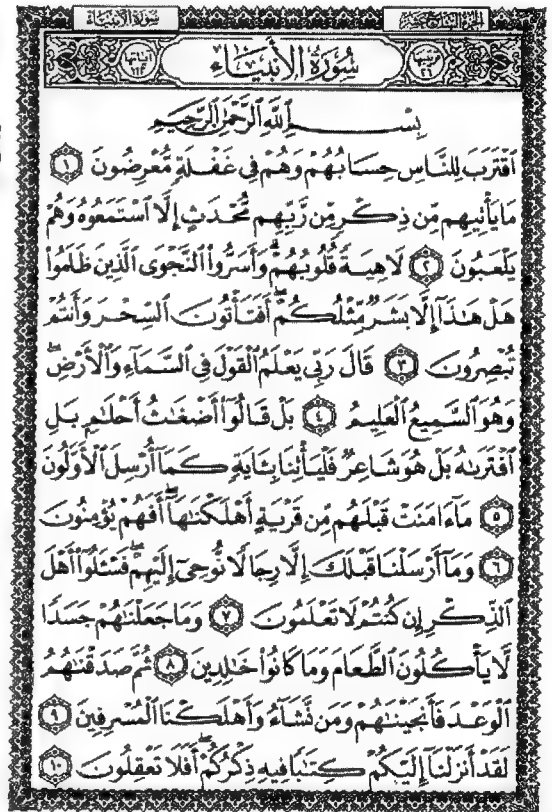 الجزء السابع عشر
سُورَةُ الأَنبِيَاء
ترتيبها ٢١
سُورَةُ الأَنبِيَاء
آياتها ١١٢
بِسْمِ ٱللَّهِ ٱلرَّحْمَٰنِ ٱلرَّحِيمِ
ٱقْتَرَبَ لِلنَّاسِ حِسَابُهُمْ وَهُمْ فِى غَفْلَةٍ مُّعْرِضُونَ ١
مَا يَأْتِيهِم مِّن ذِكْرٍ مِّن رَّبِّهِم مُّحْدَثٍ إِلَّا ٱسْتَمَعُوهُ وَهُمْ
يَلْعَبُونَ ٢ لَاهِيَةً قُلُوبُهُمْ ۗ وَأَسَرُّوا۟ ٱلنَّجْوَى ٱلَّذِينَ ظَلَمُوا۟
هَلْ هَٰذَآ إِلَّا بَشَرٌ مِّثْلُكُمْ ۖ أَفَتَأْتُونَ ٱلسِّحْرَ وَأَنتُمْ
تُبْصِرُونَ ٣ قَالَ رَبِّى يَعْلَمُ ٱلْقَوْلَ فِى ٱلسَّمَآءِ وَٱلْأَرْضِ ۖ
وَهُوَ ٱلسَّمِيعُ ٱلْعَلِيمُ ٤ بَلْ قَالُوٓا۟ أَضْغَٰثُ أَحْلَٰمٍۭ بَلِ
ٱفْتَرَىٰهُ بَلْ هُوَ شَاعِرٌ فَلْيَأْتِنَا بِـَٔايَةٍ كَمَآ أُرْسِلَ ٱلْأَوَّلُونَ
٥ مَآ ءَامَنَتْ قَبْلَهُم مِّن قَرْيَةٍ أَهْلَكْنَٰهَآ ۖ أَفَهُمْ يُؤْمِنُونَ
٦ وَمَآ أَرْسَلْنَا قَبْلَكَ إِلَّا رِجَالًا نُّوحِىٓ إِلَيْهِمْ ۖ فَسْـَٔلُوٓا۟ أَهْلَ
ٱلذِّكْرِ إِن كُنتُمْ لَا تَعْلَمُونَ ٧ وَمَا جَعَلْنَٰهُمْ جَسَدًا
لَّا يَأْكُلُونَ ٱلطَّعَامَ وَمَا كَانُوا۟ خَٰلِدِينَ ٨ ثُمَّ صَدَقْنَٰهُمُ
ٱلْوَعْدَ فَأَنجَيْنَٰهُمْ وَمَن نَّشَآءُ وَأَهْلَكْنَا ٱلْمُسْرِفِينَ ٩
لَقَدْ أَنزَلْنَآ إِلَيْكُمْ كِتَٰبًا فِيهِ ذِكْرُكُمْ ۖ أَفَلَا تَعْقِلُونَ ١٠